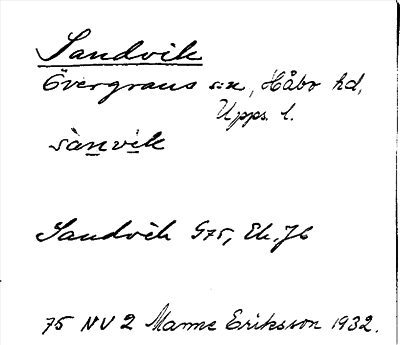 Sandvik
Övergrans sn, Håbo hd,
Upps. l.
sànvik
Sandvik G75, Ek, Jb
75 NV 2 Manne Eriksson 1932.